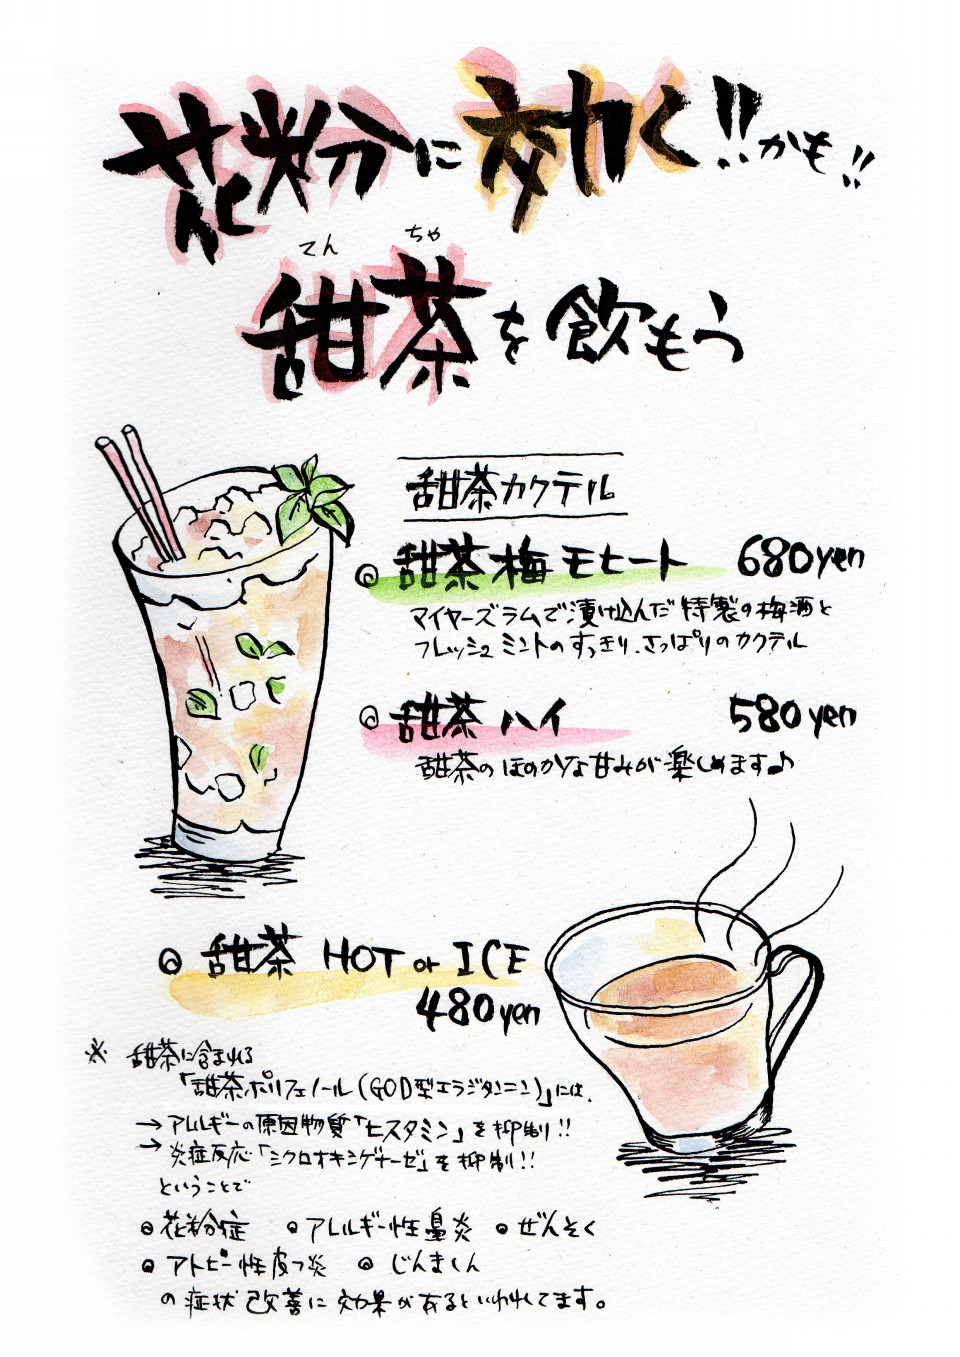 花粉に効く!!かも!!
てんちゃ
甜茶を飲もう
甜茶カクテル
◎甜茶梅モヒート 680yen
マイヤーズラムで漬け込んだ特製の梅酒と
フレッシュミントのすっきり、さっぱりのカクテル
◎甜茶ハイ 580yen
甜茶のほのかな甘みが楽しめます♪
◎甜茶 HOT or ICE
480yen
※ 甜茶に含まれる
「甜茶ポリフェノール(GOD型エラジタンニン)」には、
→アレルギーの原因物質「ヒスタミン」を抑制!!
→炎症反応「シクロオキシゲナーゼ」を抑制!!
ということで
◎花粉症 ◎アレルギー性鼻炎 ◎ぜんそく
◎アトピー性皮フ炎 ◎じんましん
の症状改善に効果があるといわれてます。